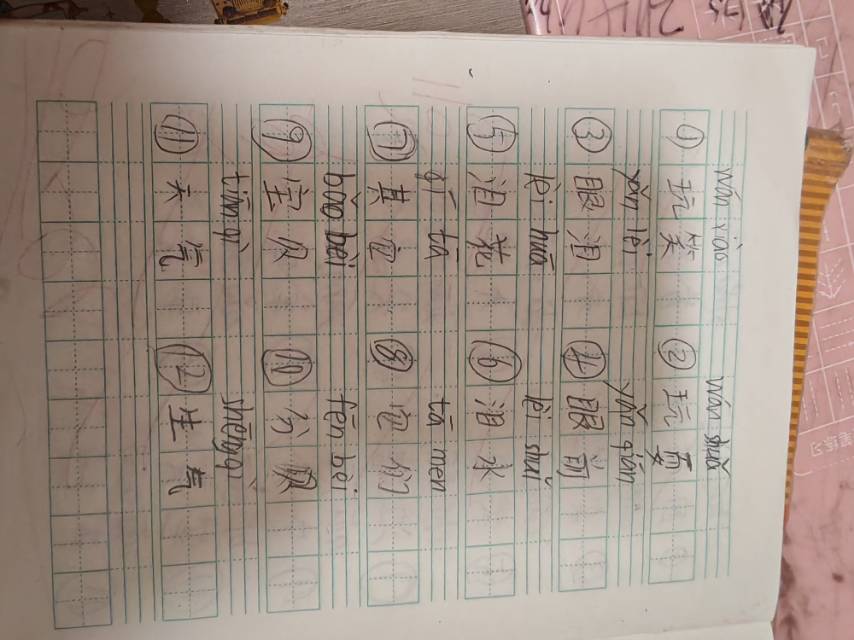 wán xiào wán shuǎ
① 玩笑 ② 玩耍
yǎn lèi yǎn qián
③ 眼泪 ④ 眼前
lèi huā lèi shuǐ
⑤ 泪花 ⑥ 泪水
qí tā tā men
⑦ 其它 ⑧ 它们
bǎo bèi fēn bèi
⑨ 宝贝 ⑩ 分贝
tiān qì shēng qì
⑪ 天气 ⑫ 生气